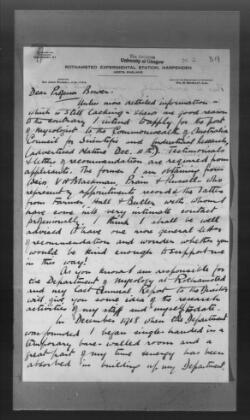 University of Glasgow
ROTHAMSTED EXPERIMENTAL STATION, HARPENDEN
HERTS, ENGLAND
Dear Professor Bower,
Unless more detailed information -
which is still lacking - shows me good reason
to the contrary I intend to apply for the post
of Mycologist to the Commonwealth of Australia
Council for Scientific and Industrial Research,
Testimonials
& letters of recommendation are required from
applicants. The former I am obtaining from
Blackman, &
represent my appointments records the latter
from Farmer, Hall & Butler with whom I
have some very intimate contact
personally. I think I shall be well
advised to have one more general letter
of recommendation and wonder whether you
would be kind enough to support me
in this way?
As you know I am responsible for
the Department of Mycology at Rothamsted
and my last Annual Report to the Director
will give you some idea of the research
activities of my staff and myself to date.
In December 1918 when the Department
was founded I began single-handed in a
temporary bare-walled room and a
great part of my time & energy has been
absorbed in building up my Department